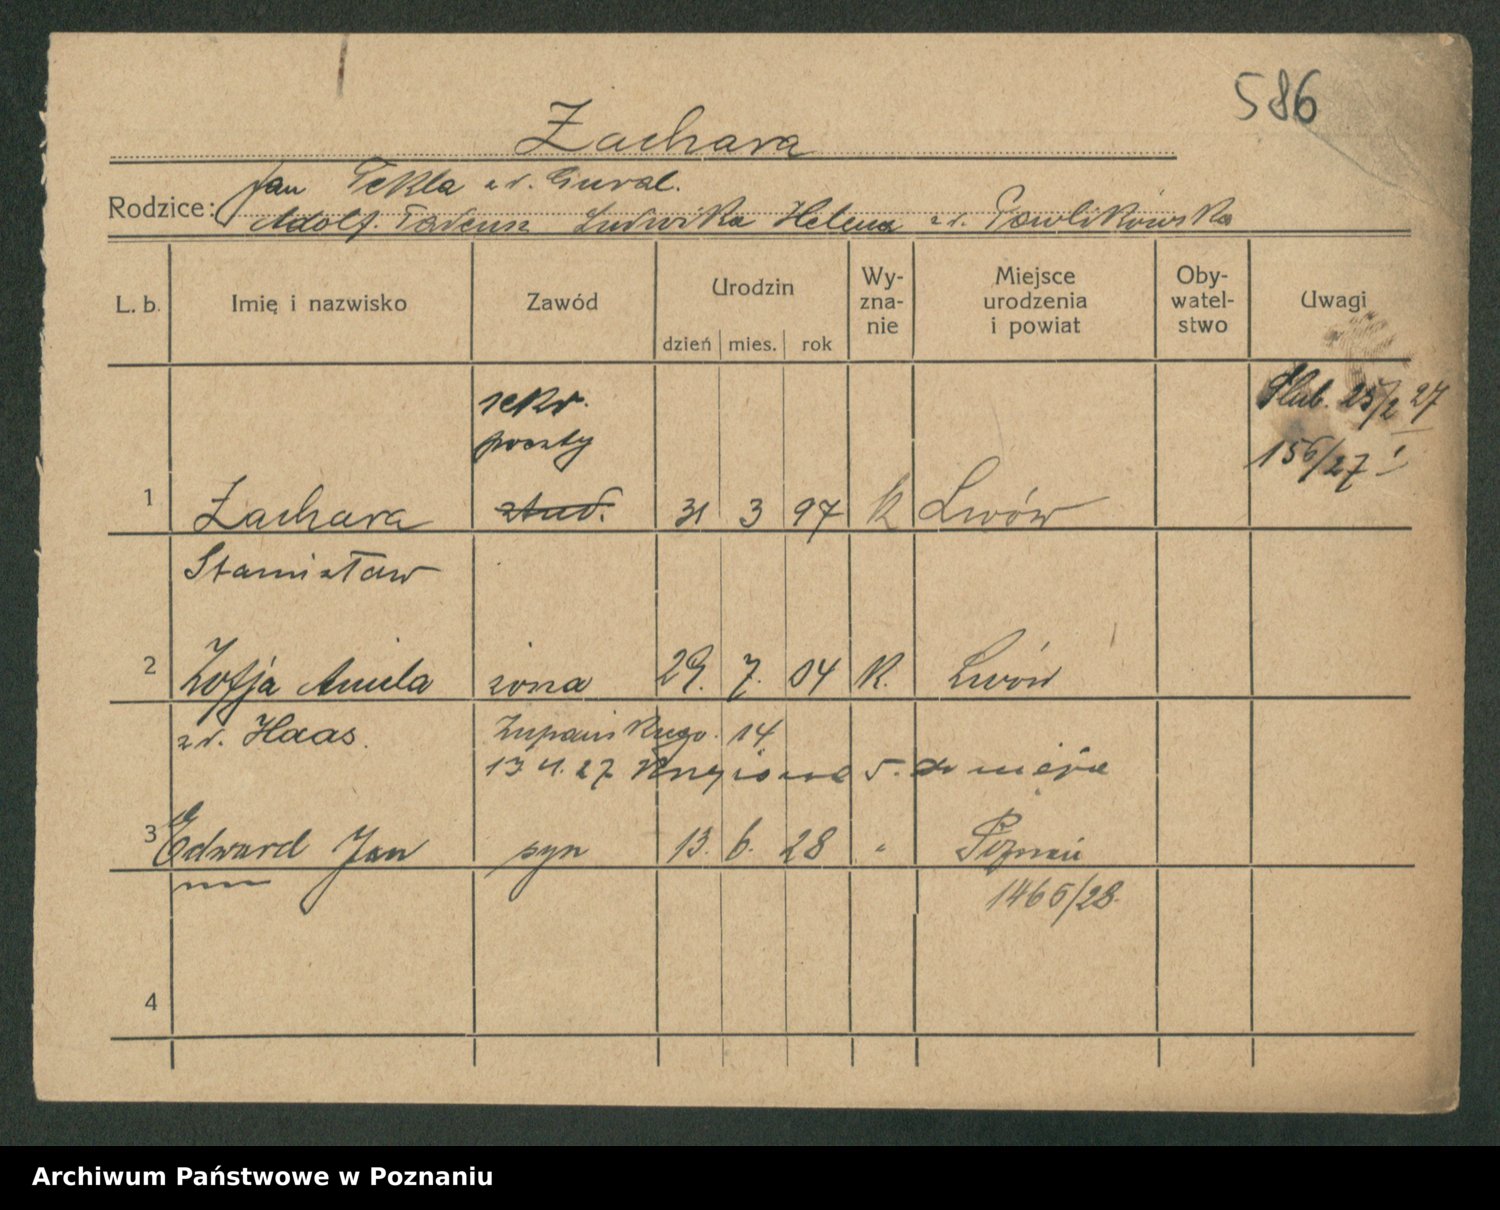 586
Zachara
Rodzice: Jan Tekla zd. Gural.
Adolf. Tadeusz Ludwika Helena zd. Pawlikowska
L. b. Imię i nazwisko Zawód Urodzin dzień mies. rok Wyznanie Miejsce urodzenia i powiat Obywatelstwo Uwagi
sekr. Ślub. 25/2 27
poczty 156/27
1 Zachara stud. 31 3 97 k Lwów
Stanisław
2 Zofja Aniela żona 29. 7. 04 k. Lwów
zd. Haas. Żupańskiego. 14
13 4. 27
3 Edward Jan syn 13. 6. 28 " Poznań
1465/28.
4
Archiwum Państwowe w Poznaniu